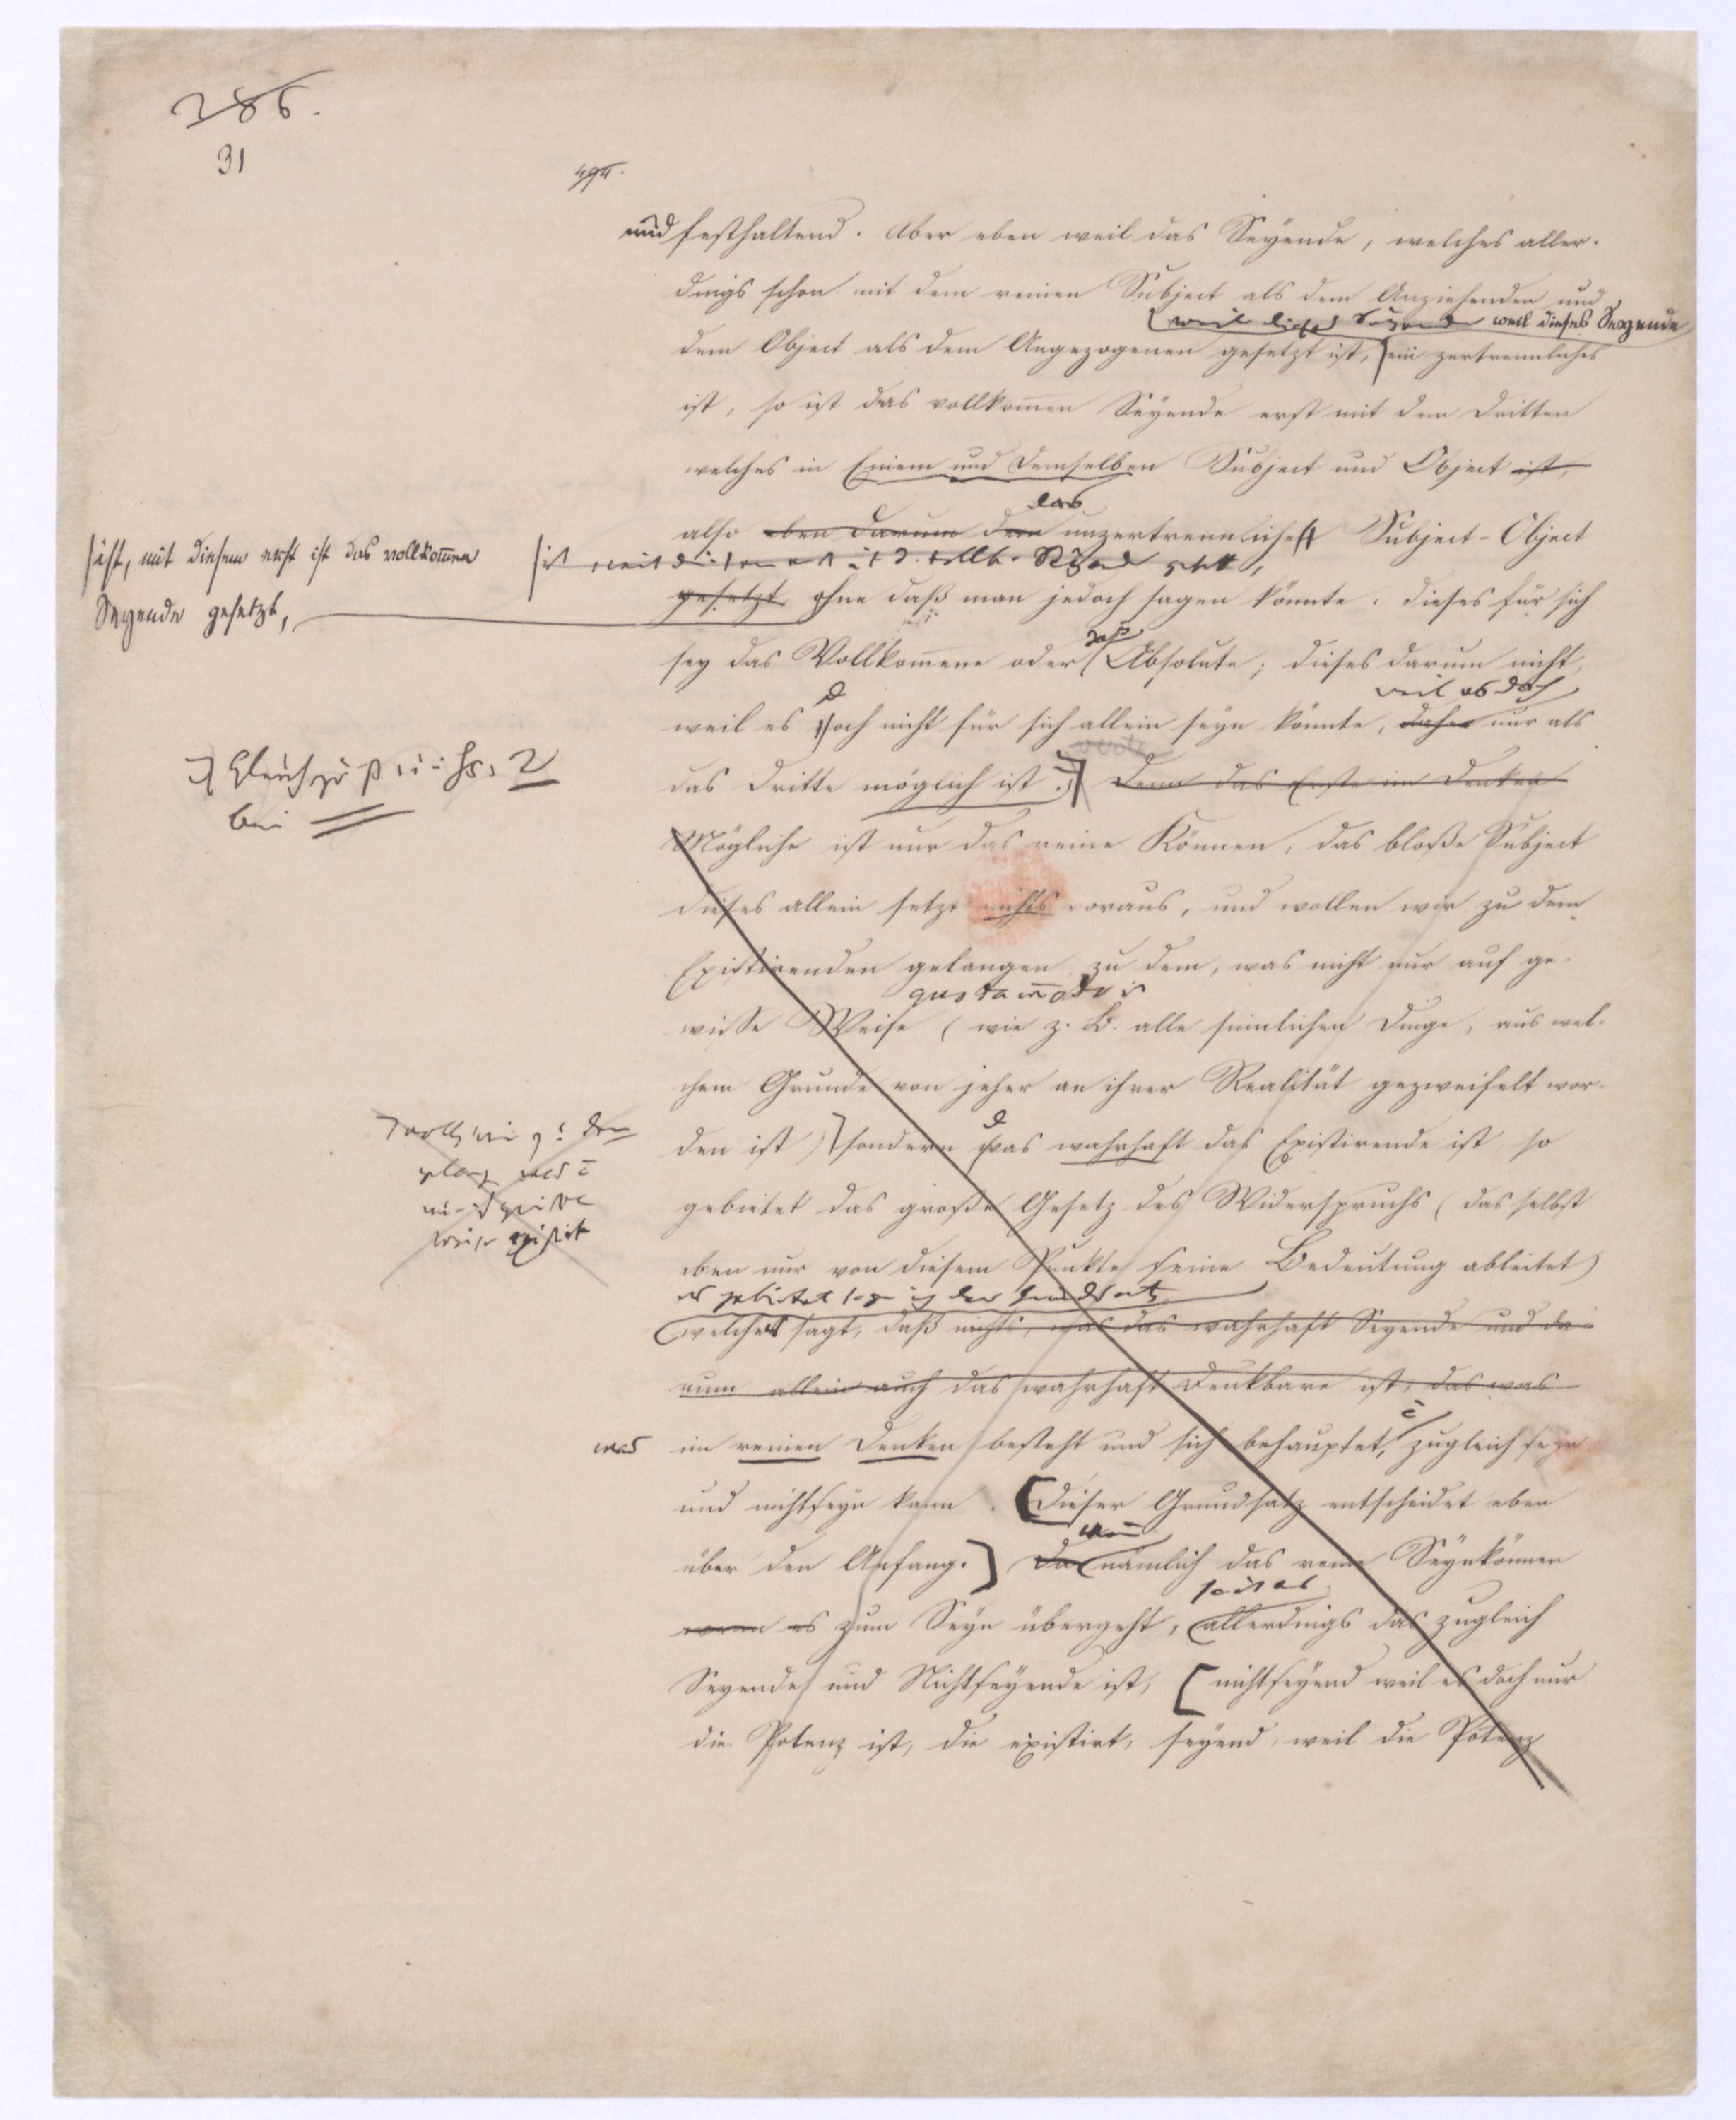 286.
31
und festhaltend. Aber eben weil das Seyende, welches aller-
dings schon mit dem reinen Subject als dem Anziehenden und
weil dieses Seyende weil dieses Seyende
dem Object als dem Angezogenen gesetzt ist, ein zertrennliches
ist, so ist das vollkom̅en Seyende erst mit dem Dritten
welches in Einem und Demselben Subject und Object ist,
das
also eben darum den unzertrennliches Subject-Object
ist, mit diesem erst ist das vollkom̅en
Seyende gesetzt,
gesetzt ohne daß man jedoch sagen könnte: dieses für sich
das
sey das Vollkom̅ene oder Absolute; dieses darum nicht,
d weil es doch
weil es doch nicht für sich allein seyn könnte, daher nur als
das Dritte möglich ist. Denn das Erste im Denken
bei
Mögliche ist nur das reine Können, das bloße Subject
dieses allein setzt nichts voraus, und wollen wir zu dem
Existirenden gelangen zu dem, was nicht nur auf ge-
wisse Weise (wie z. B. alle sinnlichen Dinge, aus wel-
chem Grunde von jeher an ihrer Realität gezweifelt wor-
den ist) sondern was wahrhaft das Existirende ist, so
gebietet das große Gesetz des Widerspruchs (das selbst
eben nur von diesem Punkte seine Bedeutung ableitet)
welches sagt, daß nichts, was das wahrhaft Seyende und da-
rum allein auch das wahrhaft Denkbare ist, das was
was im reinen Denken besteht und sich behauptet, zugleich seyn
und nichtseyn kann. [Dieser Grundsatz entscheidet eben
über den Anfang.] Da nämlich das reine Seynkönnen
so ist es
wenn es zum Seyn übergeht, allerdings das zugleich
Seyende und Nichtseyende ist, [nichtseyend weil es doch nur
die Potenz ist, die existirt, seyend, weil die Potenz